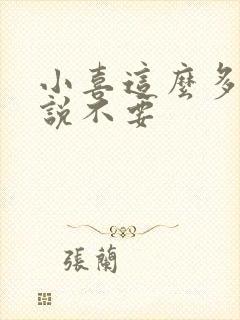 小喜這麼多
說不要
張蘭